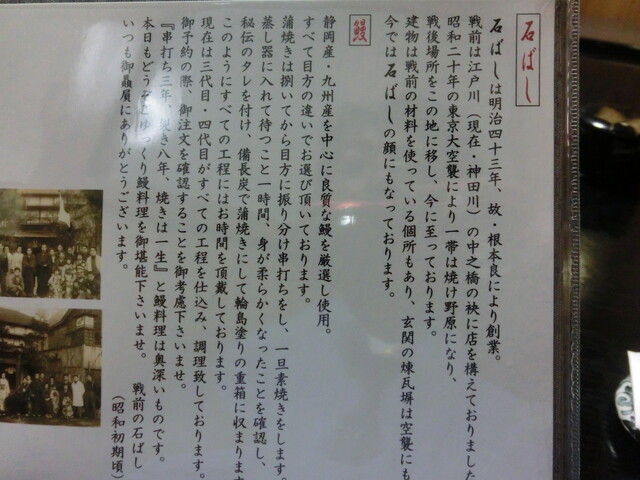 石ばし
石ばしは明治四十三年、故・根本良により創業。
戦前は江戸川（現在・神田川）の中之橋の袂に店を構えておりました
昭和二十年の東京大空襲により一帯は焼け野原になり、
戦後場所をこの地に移し、今に至っております。
建物は戦前の材料を使っている個所もあり、玄関の煉瓦塀は空襲にも
今では石ばしの顔にもなっております。
鰻
静岡産・九州産を中心に良質な鰻を厳選し使用。
すべて目方の違いでお選び頂いております。
蒲焼きは捌いてから目方に振り分け串打ちをし、一旦素焼きをします。
蒸し器に入れて待つこと一時間、身が柔らかくなったことを確認し、
秘伝のタレを付け、備長炭で蒲焼きにして輪島塗りの重箱に収まります
このようにすべての工程にはお時間を頂戴しております。
現在は三代目・四代目がすべての工程を仕込み、調理致しております。
御予約の際、御注文を確認することを御考慮下さいませ。
『串打ち三年、裂き八年、焼きは一生』と鰻料理は奥深いものです。
本日もどうぞごゆっくり鰻料理を御堪能下さいませ。
いつも御贔屓にありがとうございます。
戦前の石ばし
（昭和初期頃）